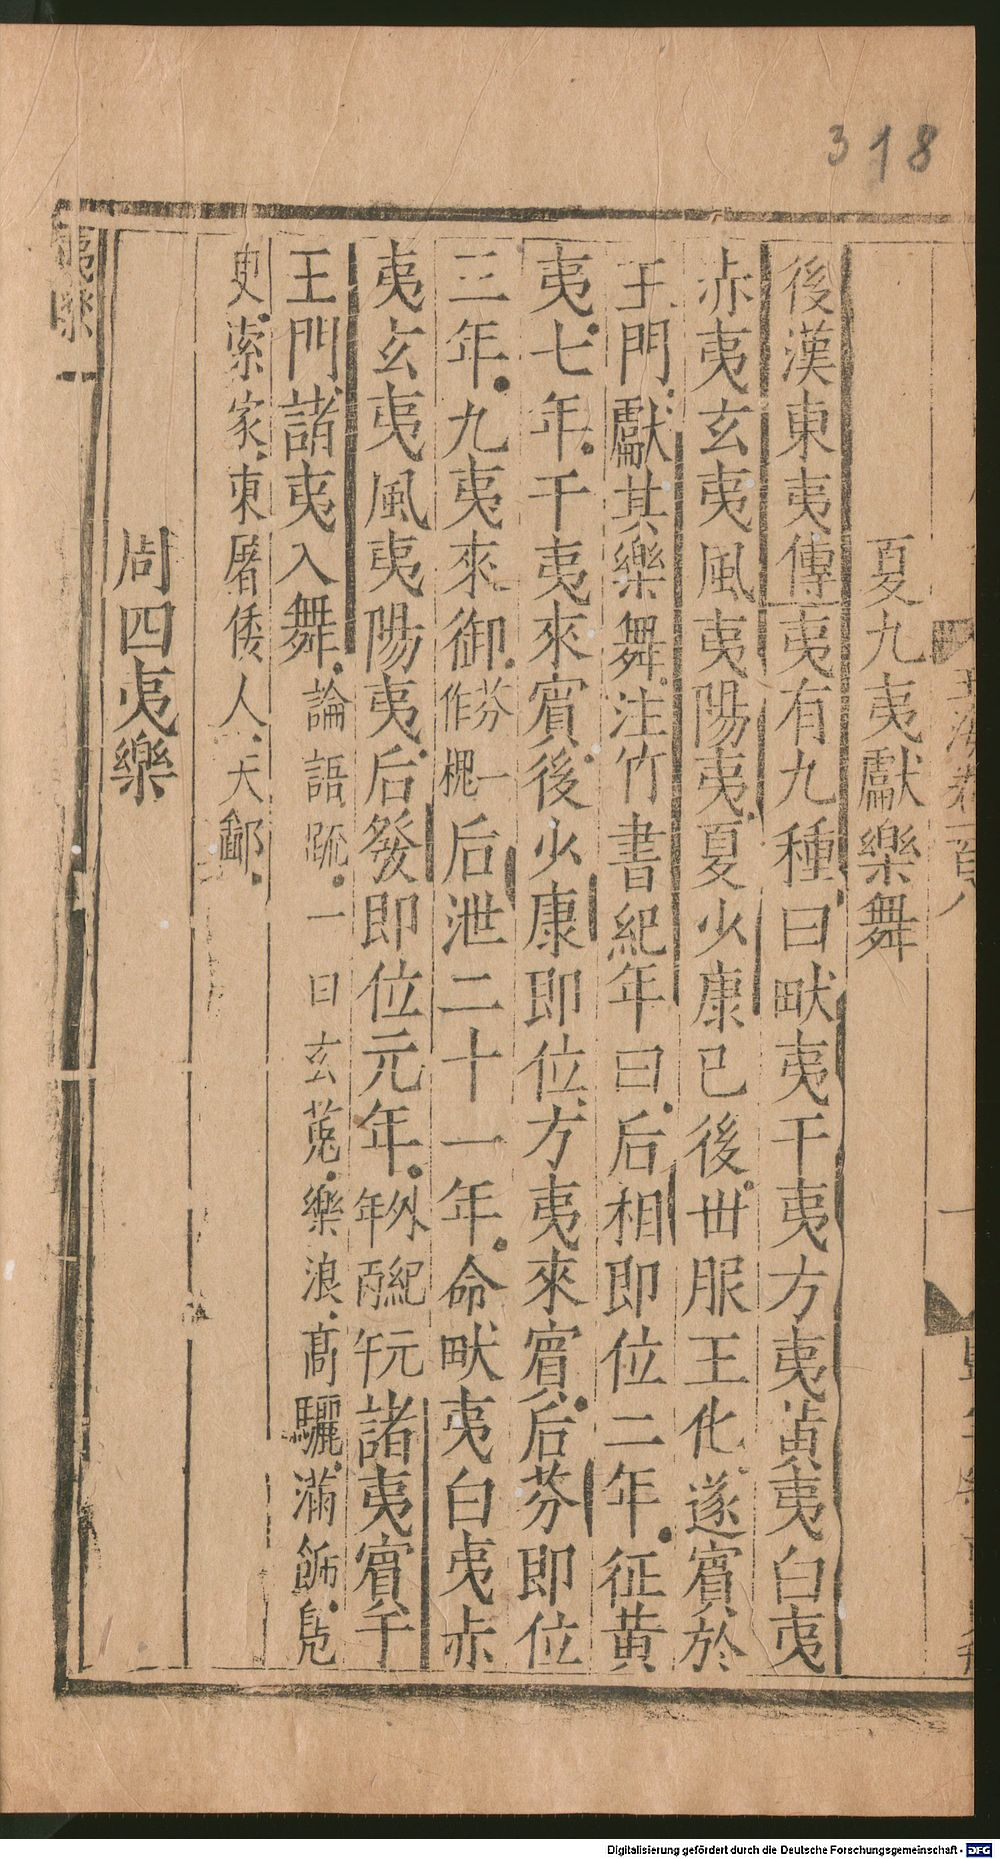 318
玉海卷一百八
夏九夷獻樂舞
後漢東夷傳夷有九種曰畎夷干夷方夷黃夷白夷
赤夷玄夷風夷陽夷夏少康已後世服王化遂賓於
王門獻其樂舞注竹書紀年曰后相即位二年征黃
夷七年干夷來賓後少康即位方夷來賓后芬即位
三年九夷來御芬一作槐后泄二十一年命畎夷白夷赤
夷玄夷風夷陽夷后發即位元年外紀元年丙午諸夷賓于
王門諸夷入舞論語疏一曰玄菟樂浪高驪滿飾鳧
史索家東屠倭人天鄙
周四夷樂
夷樂一
Digitalisierung gefördert durch die Deutsche Forschungsgemeinschaft - DFG